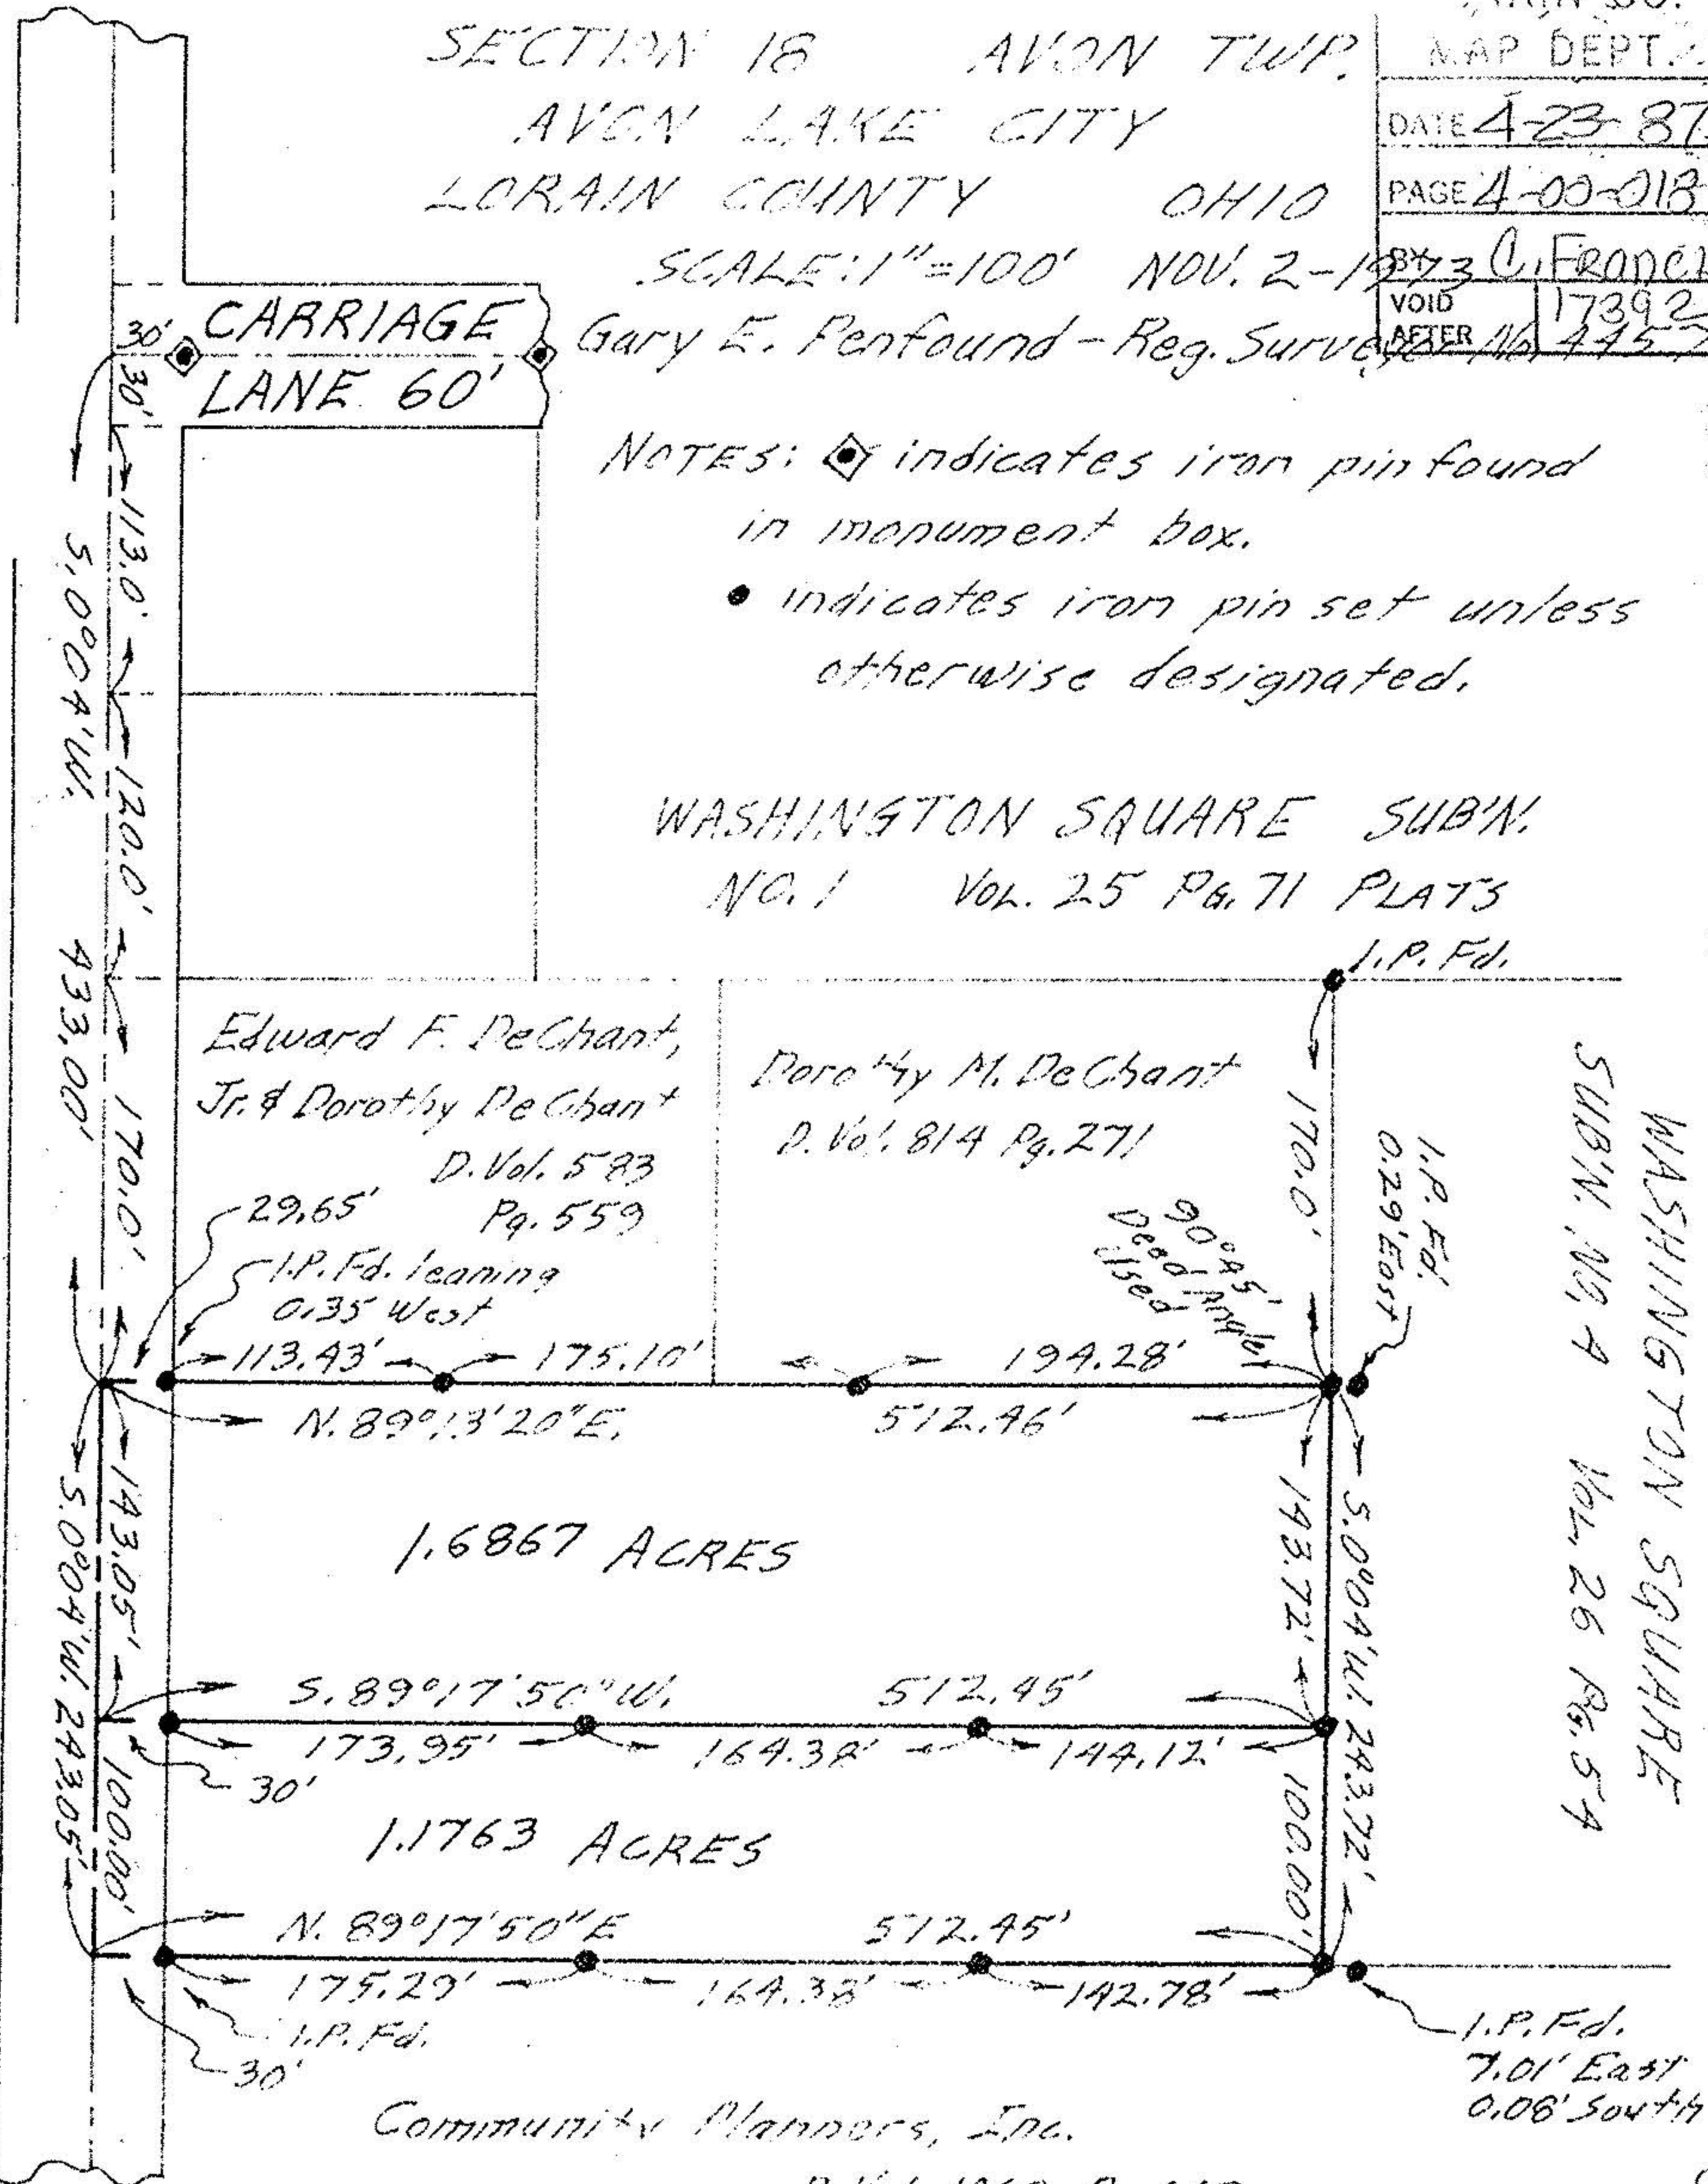 SECTION 18 AVON TWP.
AVON LAKE CITY
LORAIN COUNTY OHIO
SCALE: 1"=100' NOV. 2-1973
Gary E. Penfound - Reg. Surveyor No. 4457
MAP DEPT.
DATE 4-23-87
PAGE 4-00-018
BY C. Francis
VOID AFTER 17392
30' CARRIAGE
30' LANE 60'
NOTES: indicates iron pin found
in monument box.
• indicates iron pin set unless
otherwise designated.
S. 0°04' W. 433.00'
113.0'
120.0'
170.0'
WASHINGTON SQUARE SUB'N.
NO. 1 VOL. 25 PG. 71 PLATS
I.P. Fd.
Edward F. DeChant,
Jr. & Dorothy DeChant
D. Vol. 583
Pg. 559
Dorothy M. DeChant
D. Vol. 814 Pg. 271
170.0'
I.P. Fd.
0.29' East
WASHINGTON SQUARE
SUB'N. NO. 4 VOL. 26 PG. 54
90°45'
Deed Angle
Used
29.65'
I.P. Fd. leaning
0.35 West
113.43' 175.10' 194.28'
N. 89°13'20" E. 512.46'
143.05'
S. 0°04' W. 243.05'
143.72'
S. 0°04' W. 243.72'
1.6867 ACRES
S. 89°17'50" W. 512.45'
173.95' 164.38' 144.12'
30'
100.00'
100.00'
1.1763 ACRES
N. 89°17'50" E 512.45'
175.29' 164.38' 142.78'
I.P. Fd.
30'
I.P. Fd.
7.01' East
0.08' South
Community Planners, Inc.